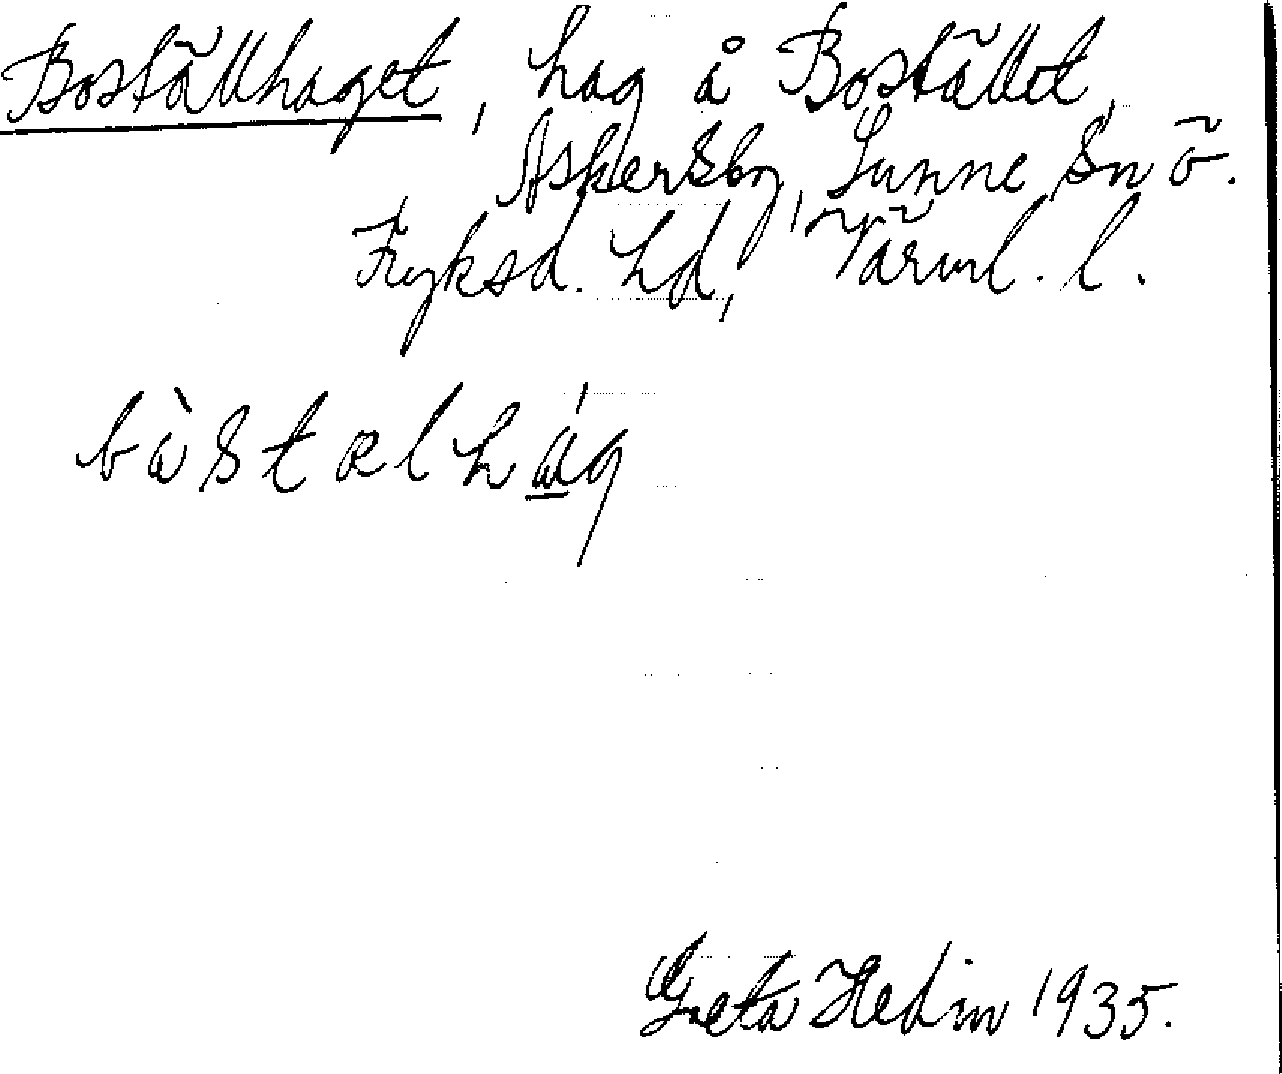 Boställhaget, hag å Bostället,
Askersby, Sunne sn ö.
Fryksd. hd, Värml. l.
bὼstælhág
Greta Hedin 1935.